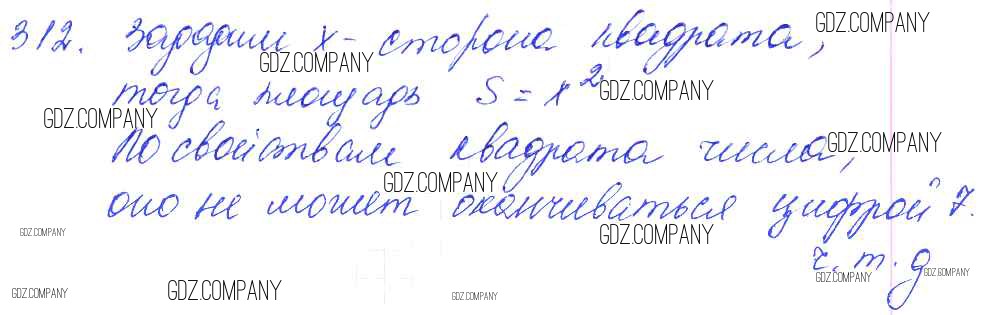 312. Зададим x - сторона квадрата,
тогда площадь S = x²
По свойствам квадрата числа,
оно не может оканчиваться цифрой 7.
ч. т. д
GDZ.COMPANY
GDZ.COMPANY
GDZ.COMPANY
GDZ.COMPANY
GDZ.COMPANY
GDZ.COMPANY
GDZ.COMPANY
GDZ.COMPANY
GDZ.COMPANY
GDZ.COMPANY
GDZ.COMPANY
GDZ.COMPANY
GDZ.COMPANY